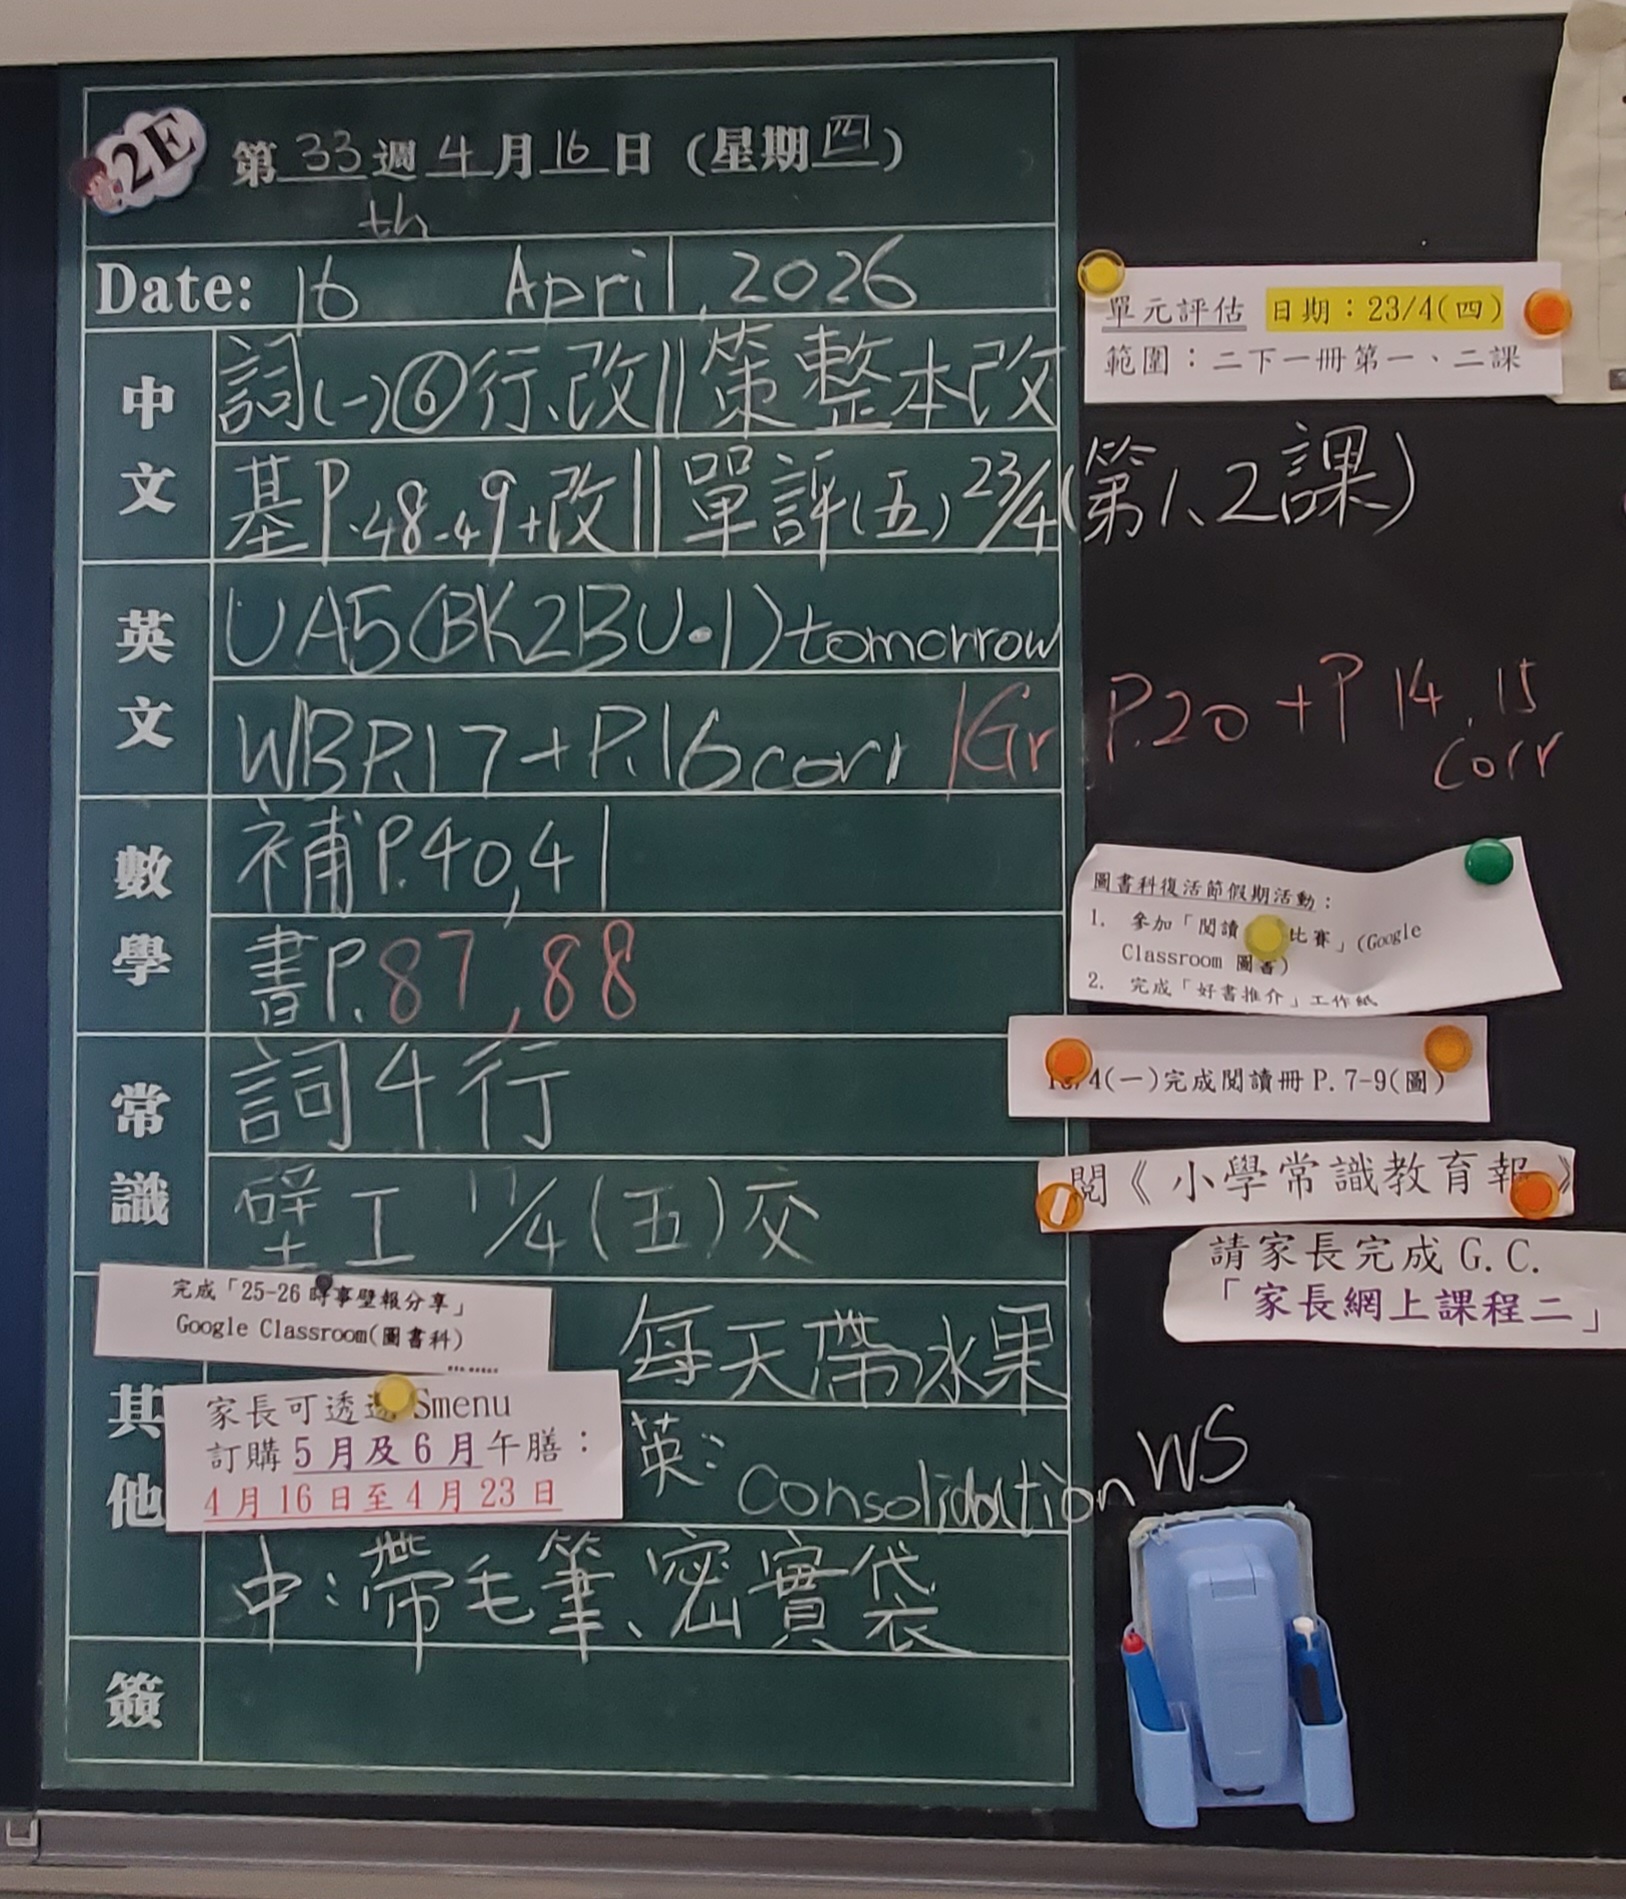 2E
第33週4月16日(星期四)
Date: 16th April, 2026
中文
詞(一)⑥行、改||策整本改
基P.48-49+改||單評(五)23/4(第1、2課)
英文
UA5(BK2BU.1)tomorrow
WBP.17+P.16corr/Gr P.20+P14.15 corr
數學
補P.40,41
書P.87,88
常識
詞4行
壁工 17/4(五)交
其他
每天帶水果
英: Consolidation WS
中:帶毛筆、密實袋
簽
完成「25-26時事壁報分享」
Google Classroom(圖書科)
家長可透過Smenu
訂購5月及6月午膳:
4月16日至4月23日
單元評估 日期:23/4(四)
範圍:二下一冊第一、二課
圖書科復活節假期活動:
1. 參加「閱讀 比賽」(Google
Classroom 圖書)
2. 完成「好書推介」工作紙
/4(一)完成閱讀冊P.7-9(圖)
閱《小學常識教育報》
請家長完成G.C.
「家長網上課程二」